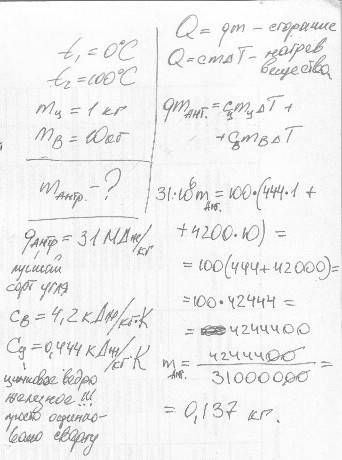 t₁ = 0°C
t₂ = 100°C
mц = 1 кг
mв = 10 кг
mантр. - ?
qантр = 31 МДж/кг
лучший
сорт угля
cв = 4,2 кДж/кг·K
cц = 0,444 кДж/кг·K
цинковое ведро
железное !!!
просто оцинко-
вано сверху
Q = qm - сгорание
Q = cmΔT - нагрев
вещества
qmант. = cцmцΔT +
+ cвmвΔT
31·10⁶mант. = 100·(444·1 +
+ 4200·10) =
= 100(444+42000) =
= 100·42444 =
= 4244400
mант. = 4244400/31000000 =
= 0,137 кг.